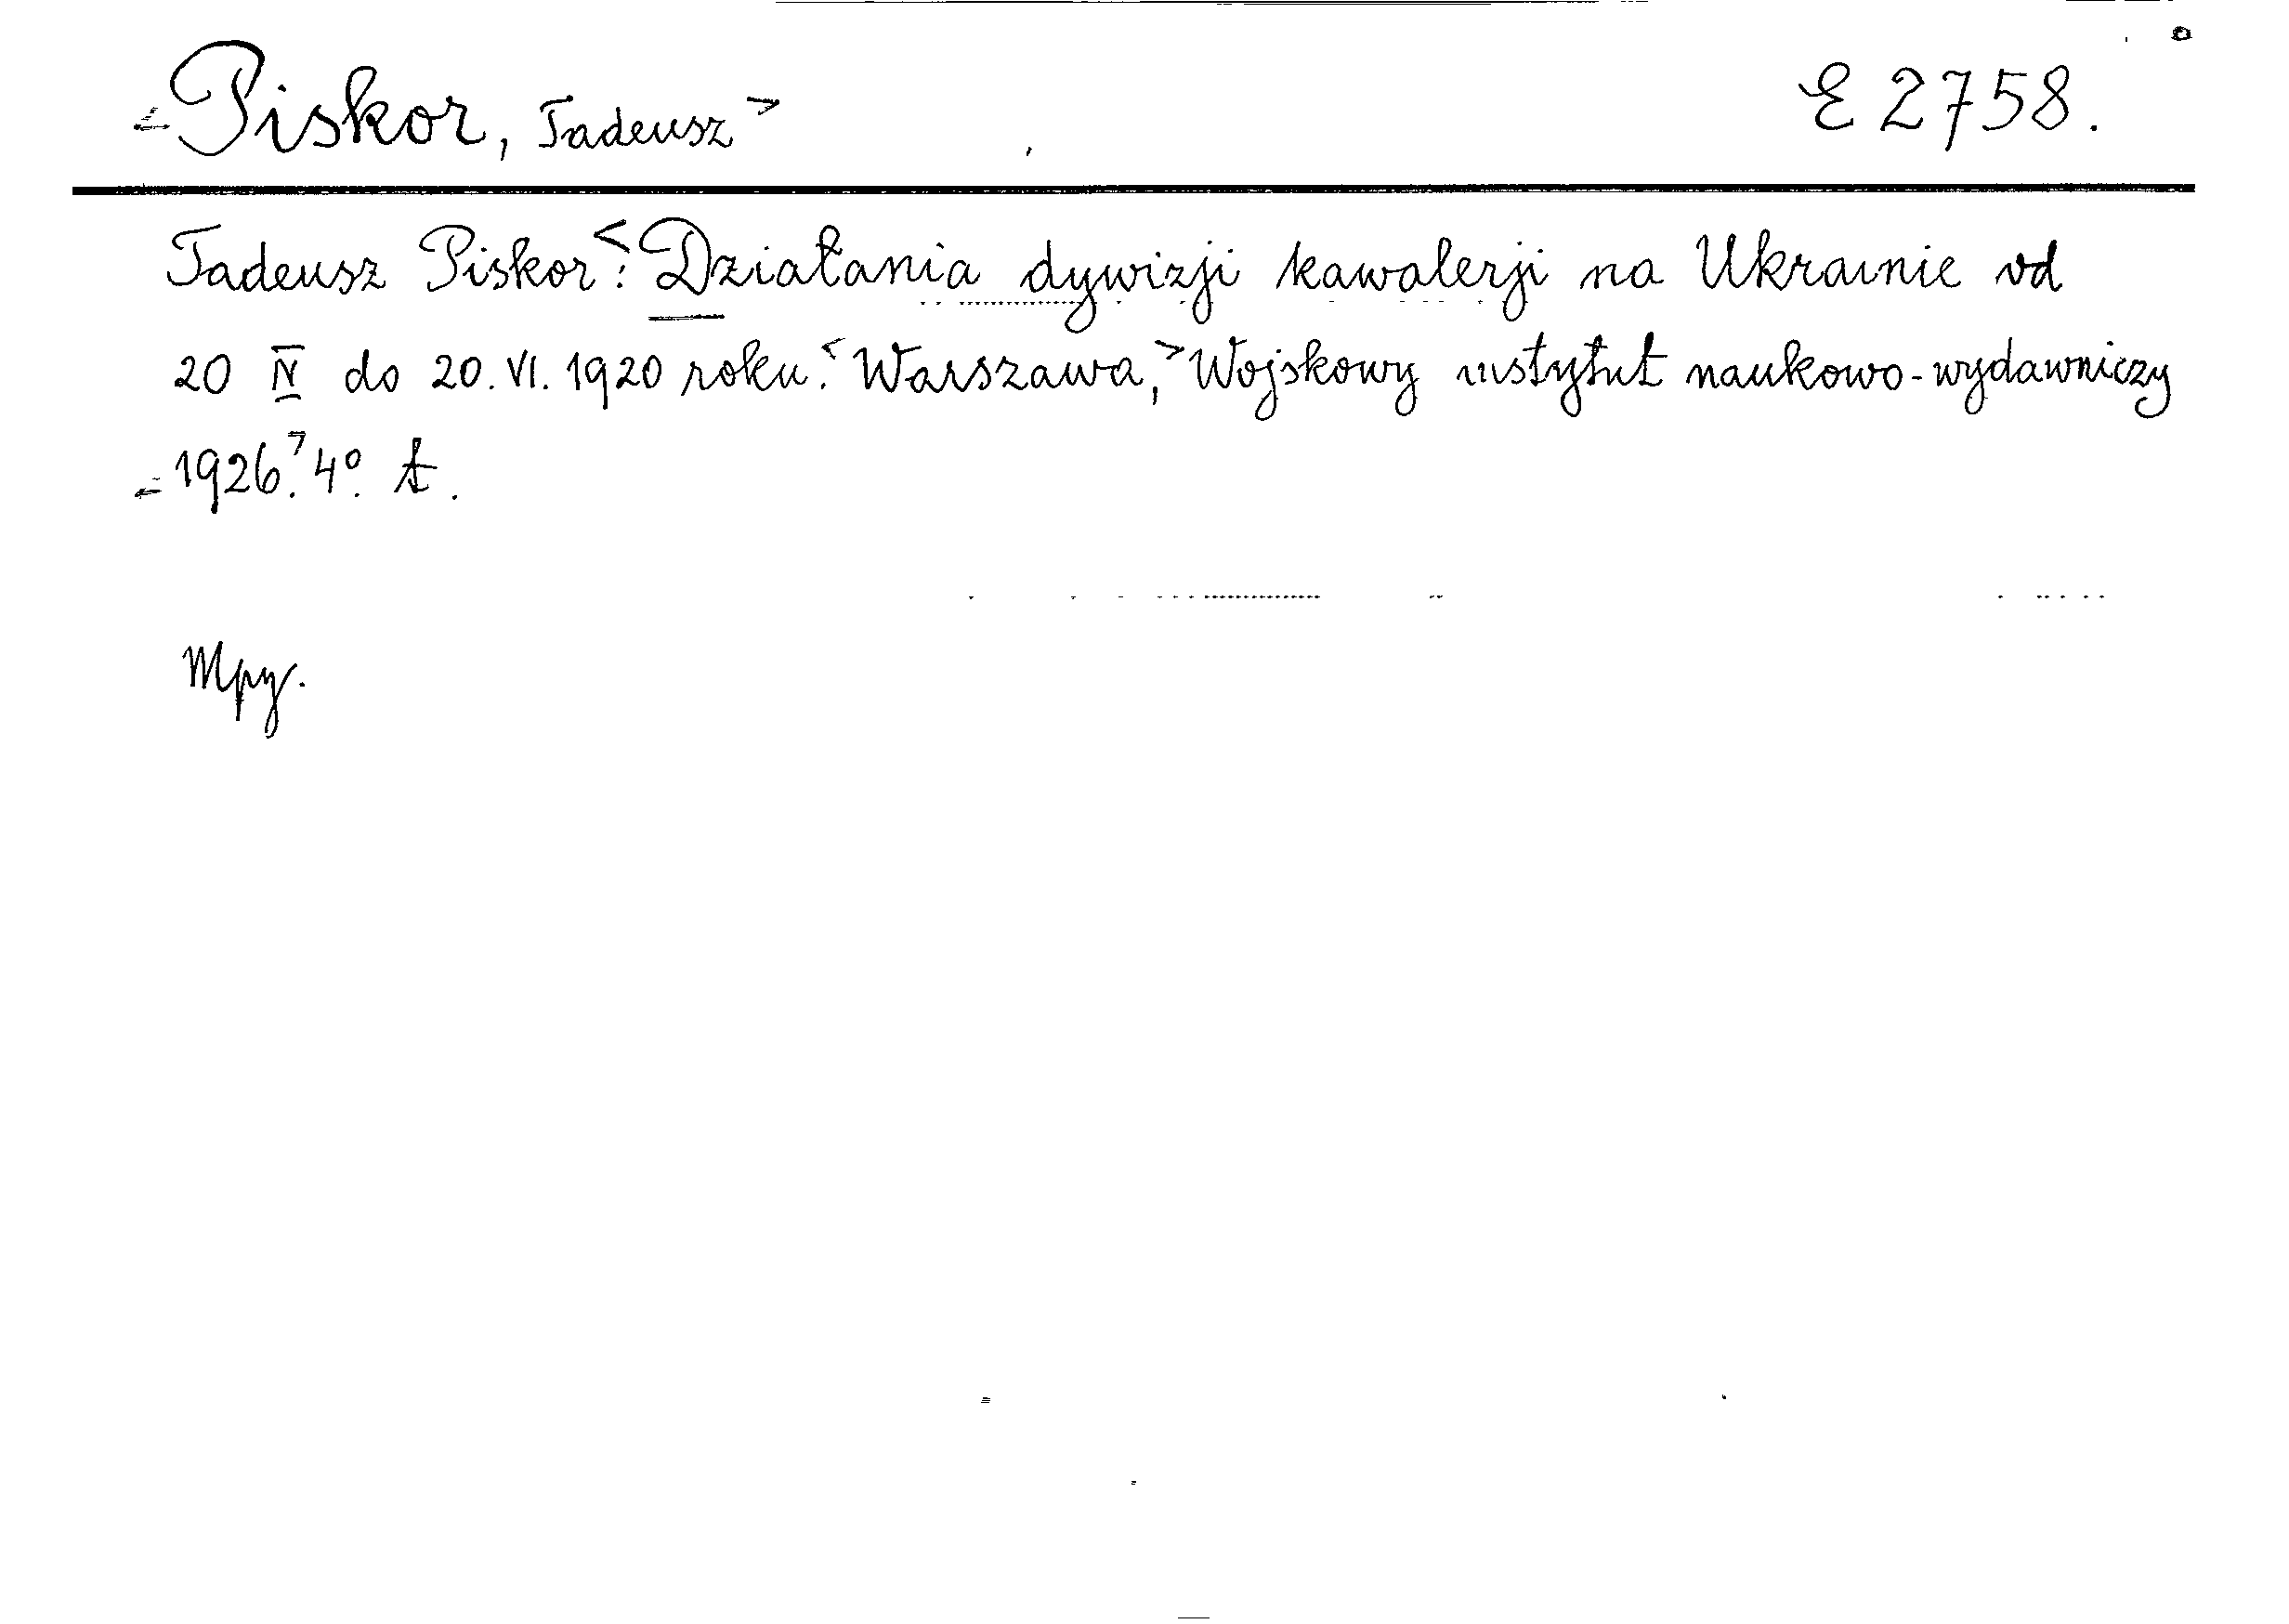 <Piskor, Tadeusz> E 2758.
Tadeusz Piskor<: Działania dywizji kawalerji na Ukrainie od
20 IV do 20. VI. 1920 roku.< Warszawa,> Wojskowy instytut naukowo-wydawniczy
<1926.> 4°. t.
Mpy.